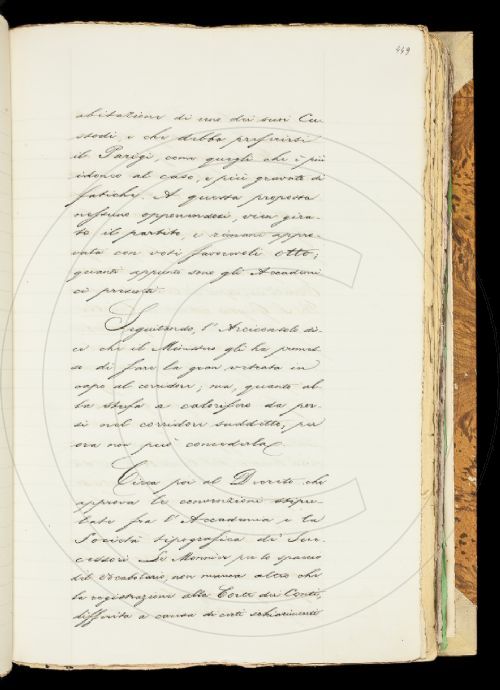 449
abitazione di uno dei suoi Cu-
stodi e che debba preferirsi
il Parigi, come quegli che è più
idoneo al caso, e più gravato di
fatiche. A questa proposta
nessuno opponendosi, vien gira-
to il partito, e rimane appro-
vata con voti favorevoli otto;
quanti appunto sono gli Accademi
ci presenti.
Seguitando, l'Arciconsolo di-
ce che il Ministro gli ha promes-
so di fare la gran vetrata in
capo al corridore; ma, quanto al
la stufa a calorifero da por-
si nel corridore suddetto, per
ora non può concederla.
Circa poi al Decreto che
approva la convenzione stipu-
lata fra l'Accademia e la
Società tipografica di Suc-
cessori Le Monnier per lo spaccio
del Vocabolario, non manca altro che
la registrazione alla Corte dei Conti,
differita a causa di certi schiarimenti